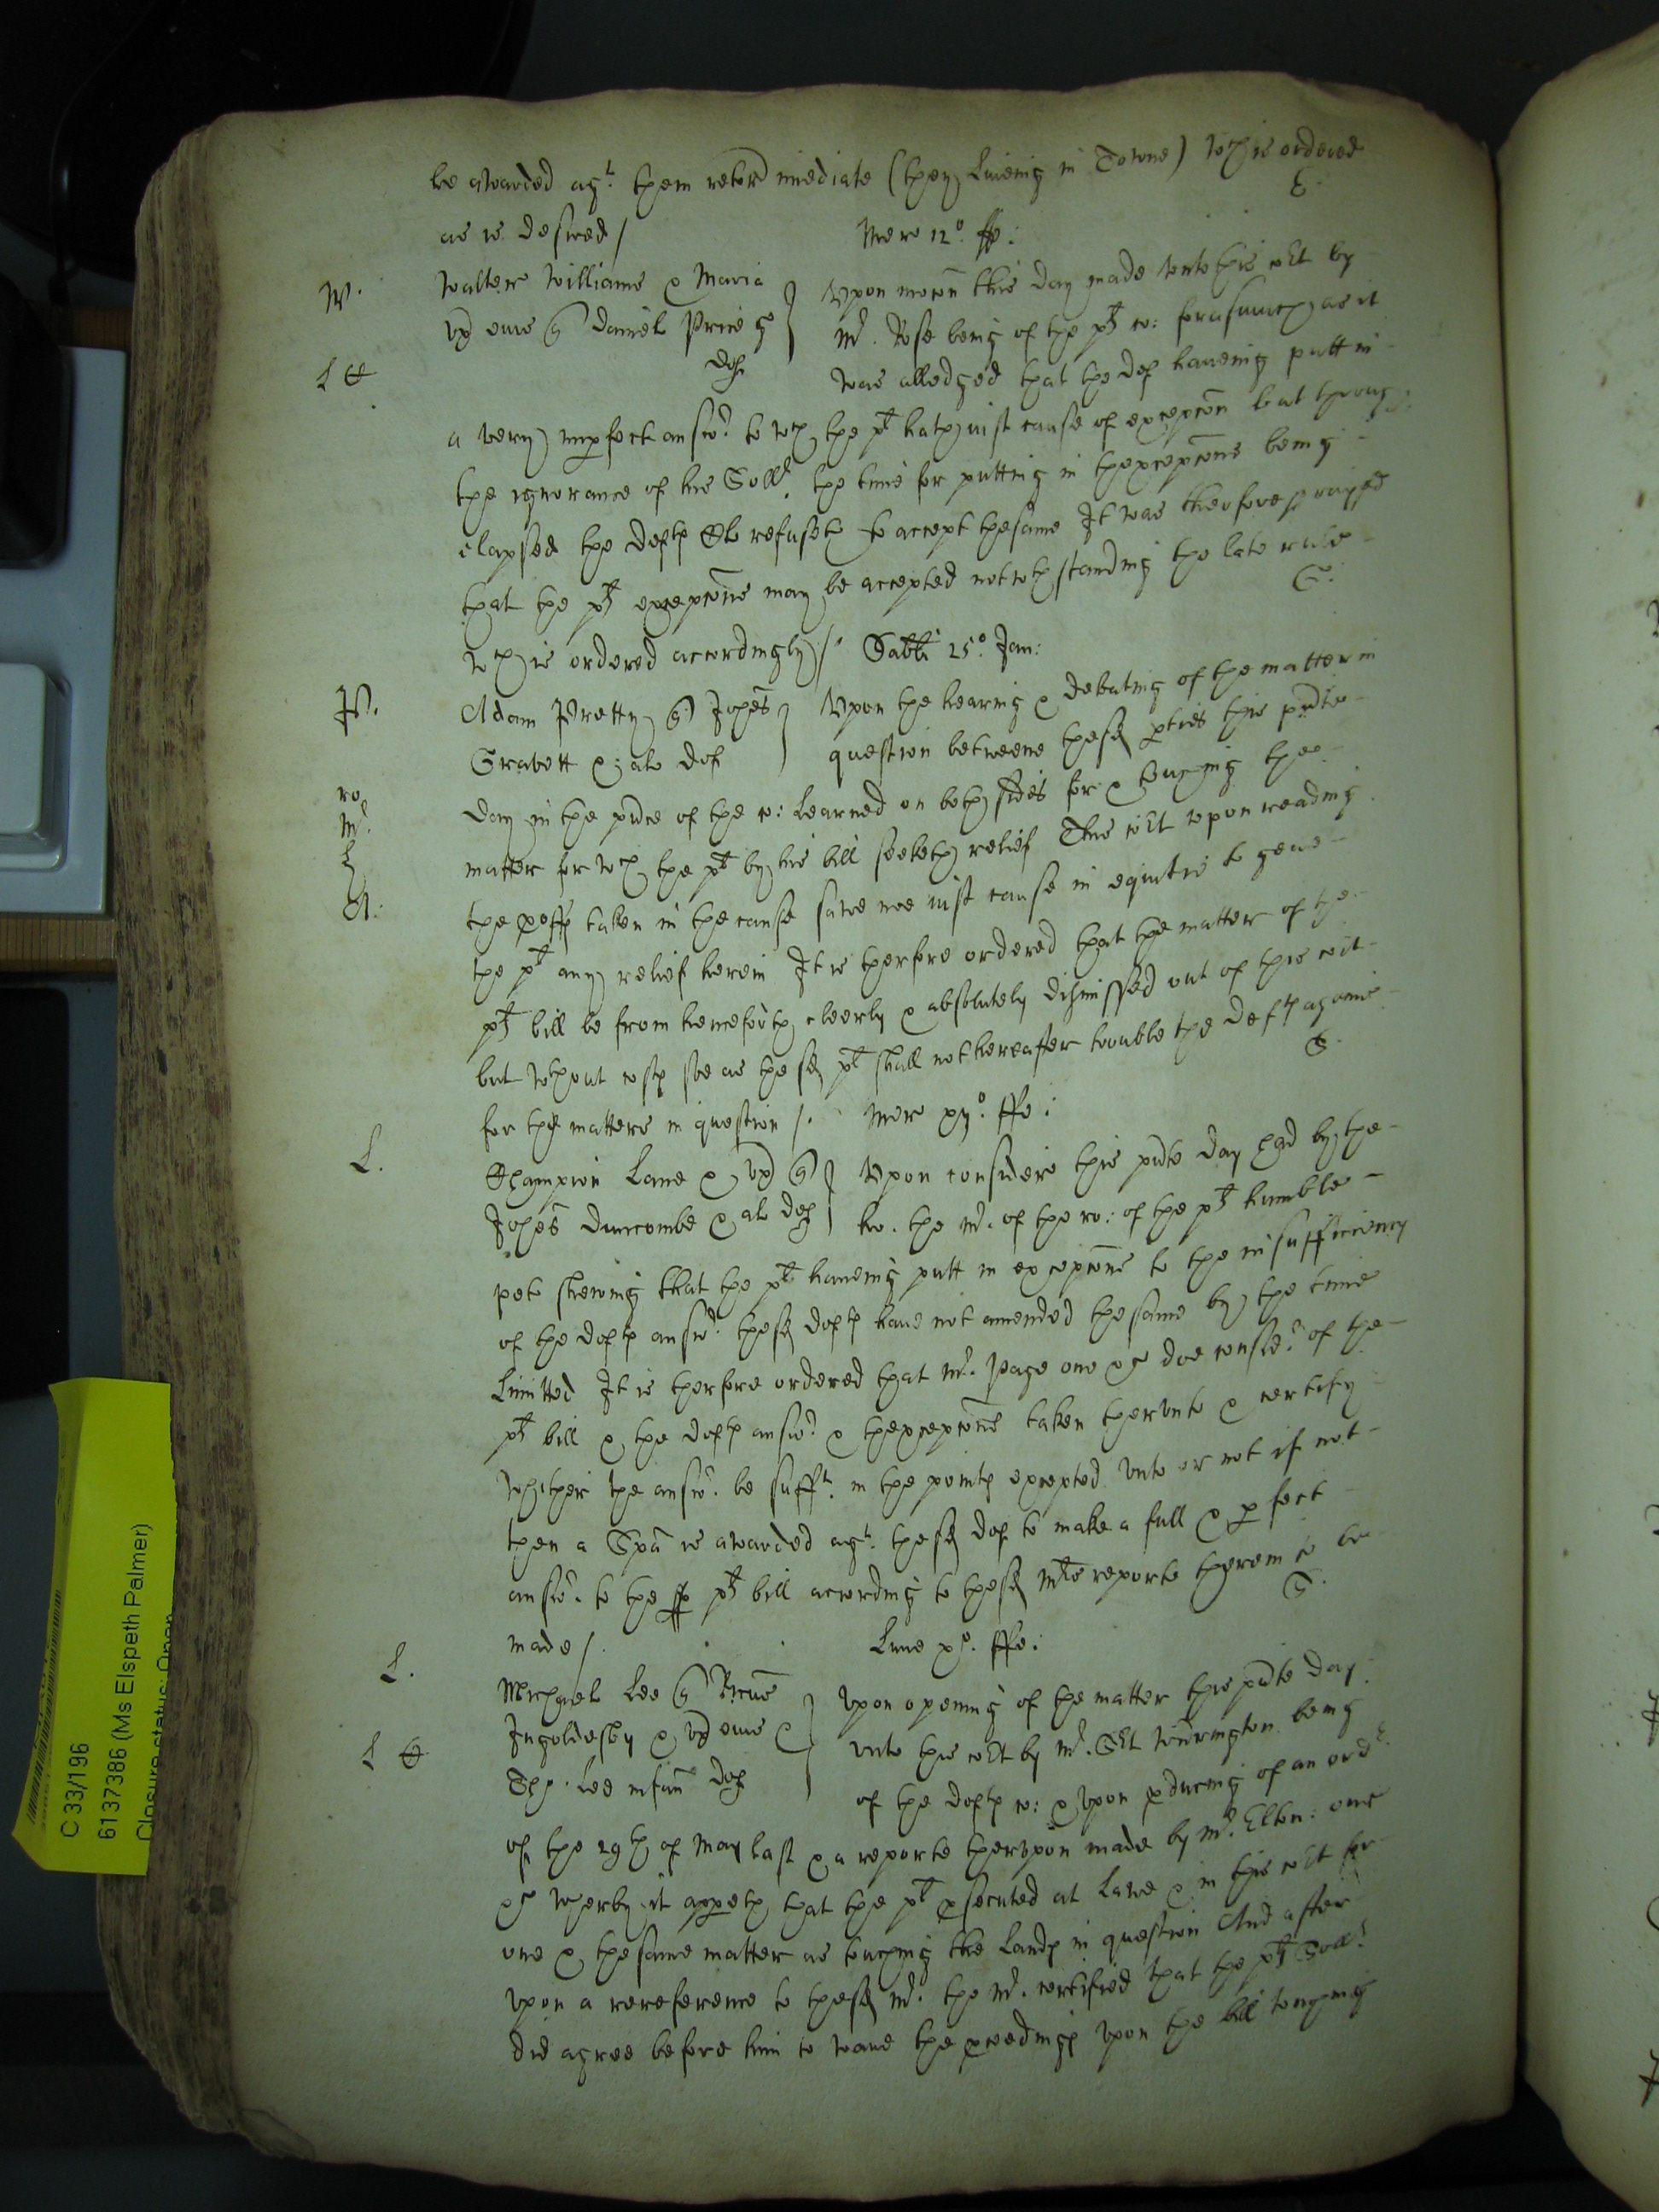 be awarded agt. them retord imediate (they liveing in Towne) wch is ordered
as is desired /
Mere 12o. ffe:
W.
Walter Williams & Maria
ux eius Daniel Price
def
Upon mocon this day made unto this cort by
Mr. Rose being of the pts co: forasmuch as it
was alledged that the def haveing putt in
a very imperfect answr. to wch the pt hath iust cause of excepcon but through
the ignorance of his Sollr. the time for putting in thexcepcons being
elapsed the defts Cl refuseth to accept the same It was therfore prayed
that the pts excepcons may be accepted notwthstanding the late rule
wch is ordered accordingly /. Sabbi 25o. Jan:
P.
Adam Pretty Johes
Gravett & al def
Upon the hearing & debating of the matter in
question betweene these pties this pnte
ro
Mr.
day in the pnce of the co: learned on both sides for & touching the
matter for wch the pt by his bill seeketh relief This cort upon reading
A:
the proffs taken in the cause sawe noe iust cause in equitie to geve
the pt any relief herein It is therfore ordered that the matter of the
pts bill be from henceforth cleerly & absolutely dismissed out of this cort
but wthout costs soe as the sd pt shall not hereafter trouble the defts againe
for the matters in question /. Mere xijo. ffe:
L.
Champion Lane & ux
Johes Duncombe & al def
Upon considere this pnte day had by the
ho. the Mr. of the ro: of the pts humble
peto shewing that the pt haveing putt in excepcons to the insufficiency
of the defts answr. the sd defts have not amended the same by the time
limitted It is therfore ordered that Mr. Page one &c doe considr. of the
pts bill & the defts answr. & thexcepcons taken therunto & certify
whether the answr. be sufft. in the points excepted unto or not if not
then a Spa is awarded agt. the sd def to make a full & pfect
answr. to the pts bill according to the sd Mrs reporte therein to be
made /.
Lune xo. ffe:
L.
Michael Lee
Ingoldesby & ux eius &
Tho. Lee infan def
Upon opening of the matter this pnte day
unto this cort by Mr. being
of the defts co: & upon pducing of an ordr
of the 29th of May last & a reporte therupon made by Mr. Elton: one
&c wherby it appeth that the pt psecuted at lawe & in this cort for
one & the same matter as touching the lands in question And after
upon a rereference to the sd Mr. the Mr. certified that the pts Sollr
did agree before him to wave the pceedings upon the bill touching
C 33/196
6137386 (Ms Elspeth Palmer)
Closure status: Open